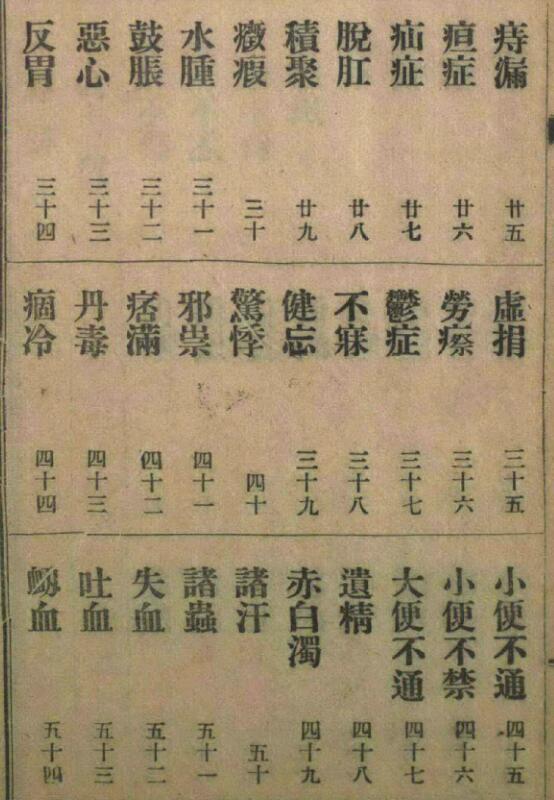 痔漏 廿五
疸症 廿六
疝症 廿七
脫肛 廿八
積聚 廿九
癥瘕 三十
水腫 三十一
鼓脹 三十二
惡心 三十三
反胃 三十四
虛捐 三十五
勞瘵 三十六
鬱症 三十七
不寐 三十八
健忘 三十九
驚悸 四十
邪祟 四十一
痞滿 四十二
丹毒 四十三
痼冷 四十四
小便不通 四十五
小便不禁 四十六
大便不通 四十七
遺精 四十八
赤白濁 四十九
諸汗 五十
諸蟲 五十一
失血 五十二
吐血 五十三
血 五十四